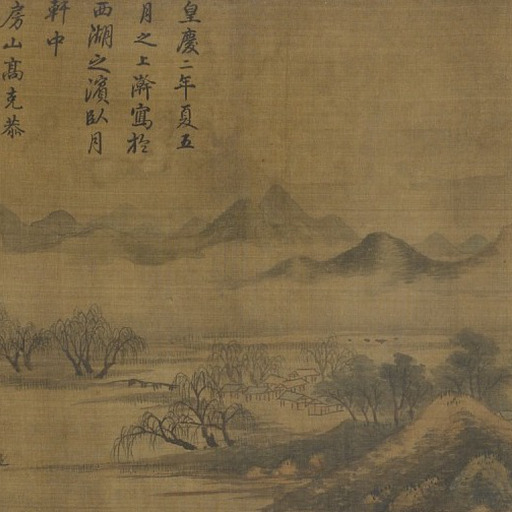 皇慶二年夏五
月之上澣寫於
西湖之濱臥月
軒中
房山高克恭